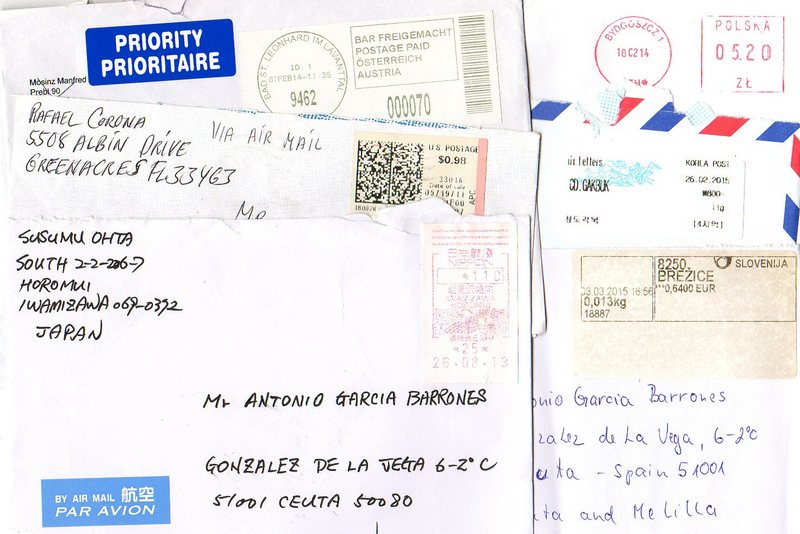 PRIORITY
PRIORITAIRE
Mösinz Manfred
Prebl 90
BAD ST. LEONHARD IM LAVANTTAL
ID: 1
07FEB14-11:35
9462
BAR FREIGEMACHT
POSTAGE PAID
ÖSTERREICH
AUSTRIA
000070
BYDGOSZCZ 1
18 02 14
POLSKA
05.20
ZŁ
RAFAEL CORONA
5508 ALBIN DRIVE
GREENACRES FL 33463
VIA AIR MAIL
U.S. POSTAGE
$0.98
33018
Date of sale
05/19/11
APC
Mr
Air Letters
KOREA POST
CD.GAKBUK
26.02.2015
₩800-
청도각북
SLOVENIJA
8250,
BREŽICE
03.03.2015 16:56
**0,6400 EUR
0,013kg
18887
SUSUMU OHTA
SOUTH 2-2-206-7
HOROMUI
IWAMIZAWA 069-0392
JAPAN
日本郵便
NIPPON
*110
*25*
26-08-13
Mr ANTONIO GARCIA BARRONES
GONZALEZ DE LA VEGA 6-2º C
51001 CEUTA 50080
BY AIR MAIL 航空
PAR AVION
onio Garcia Barrones
zalez de La Vega, 6-2ºC
euta - Spain 51001
uta and Melilla